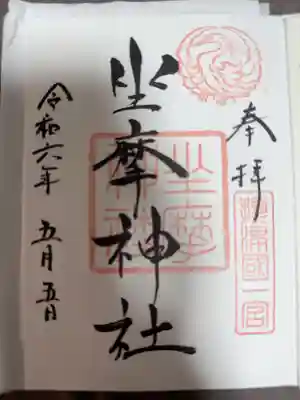 奉拝
摂津國一宮
坐摩神社
坐摩神社
令和六年 五月五日